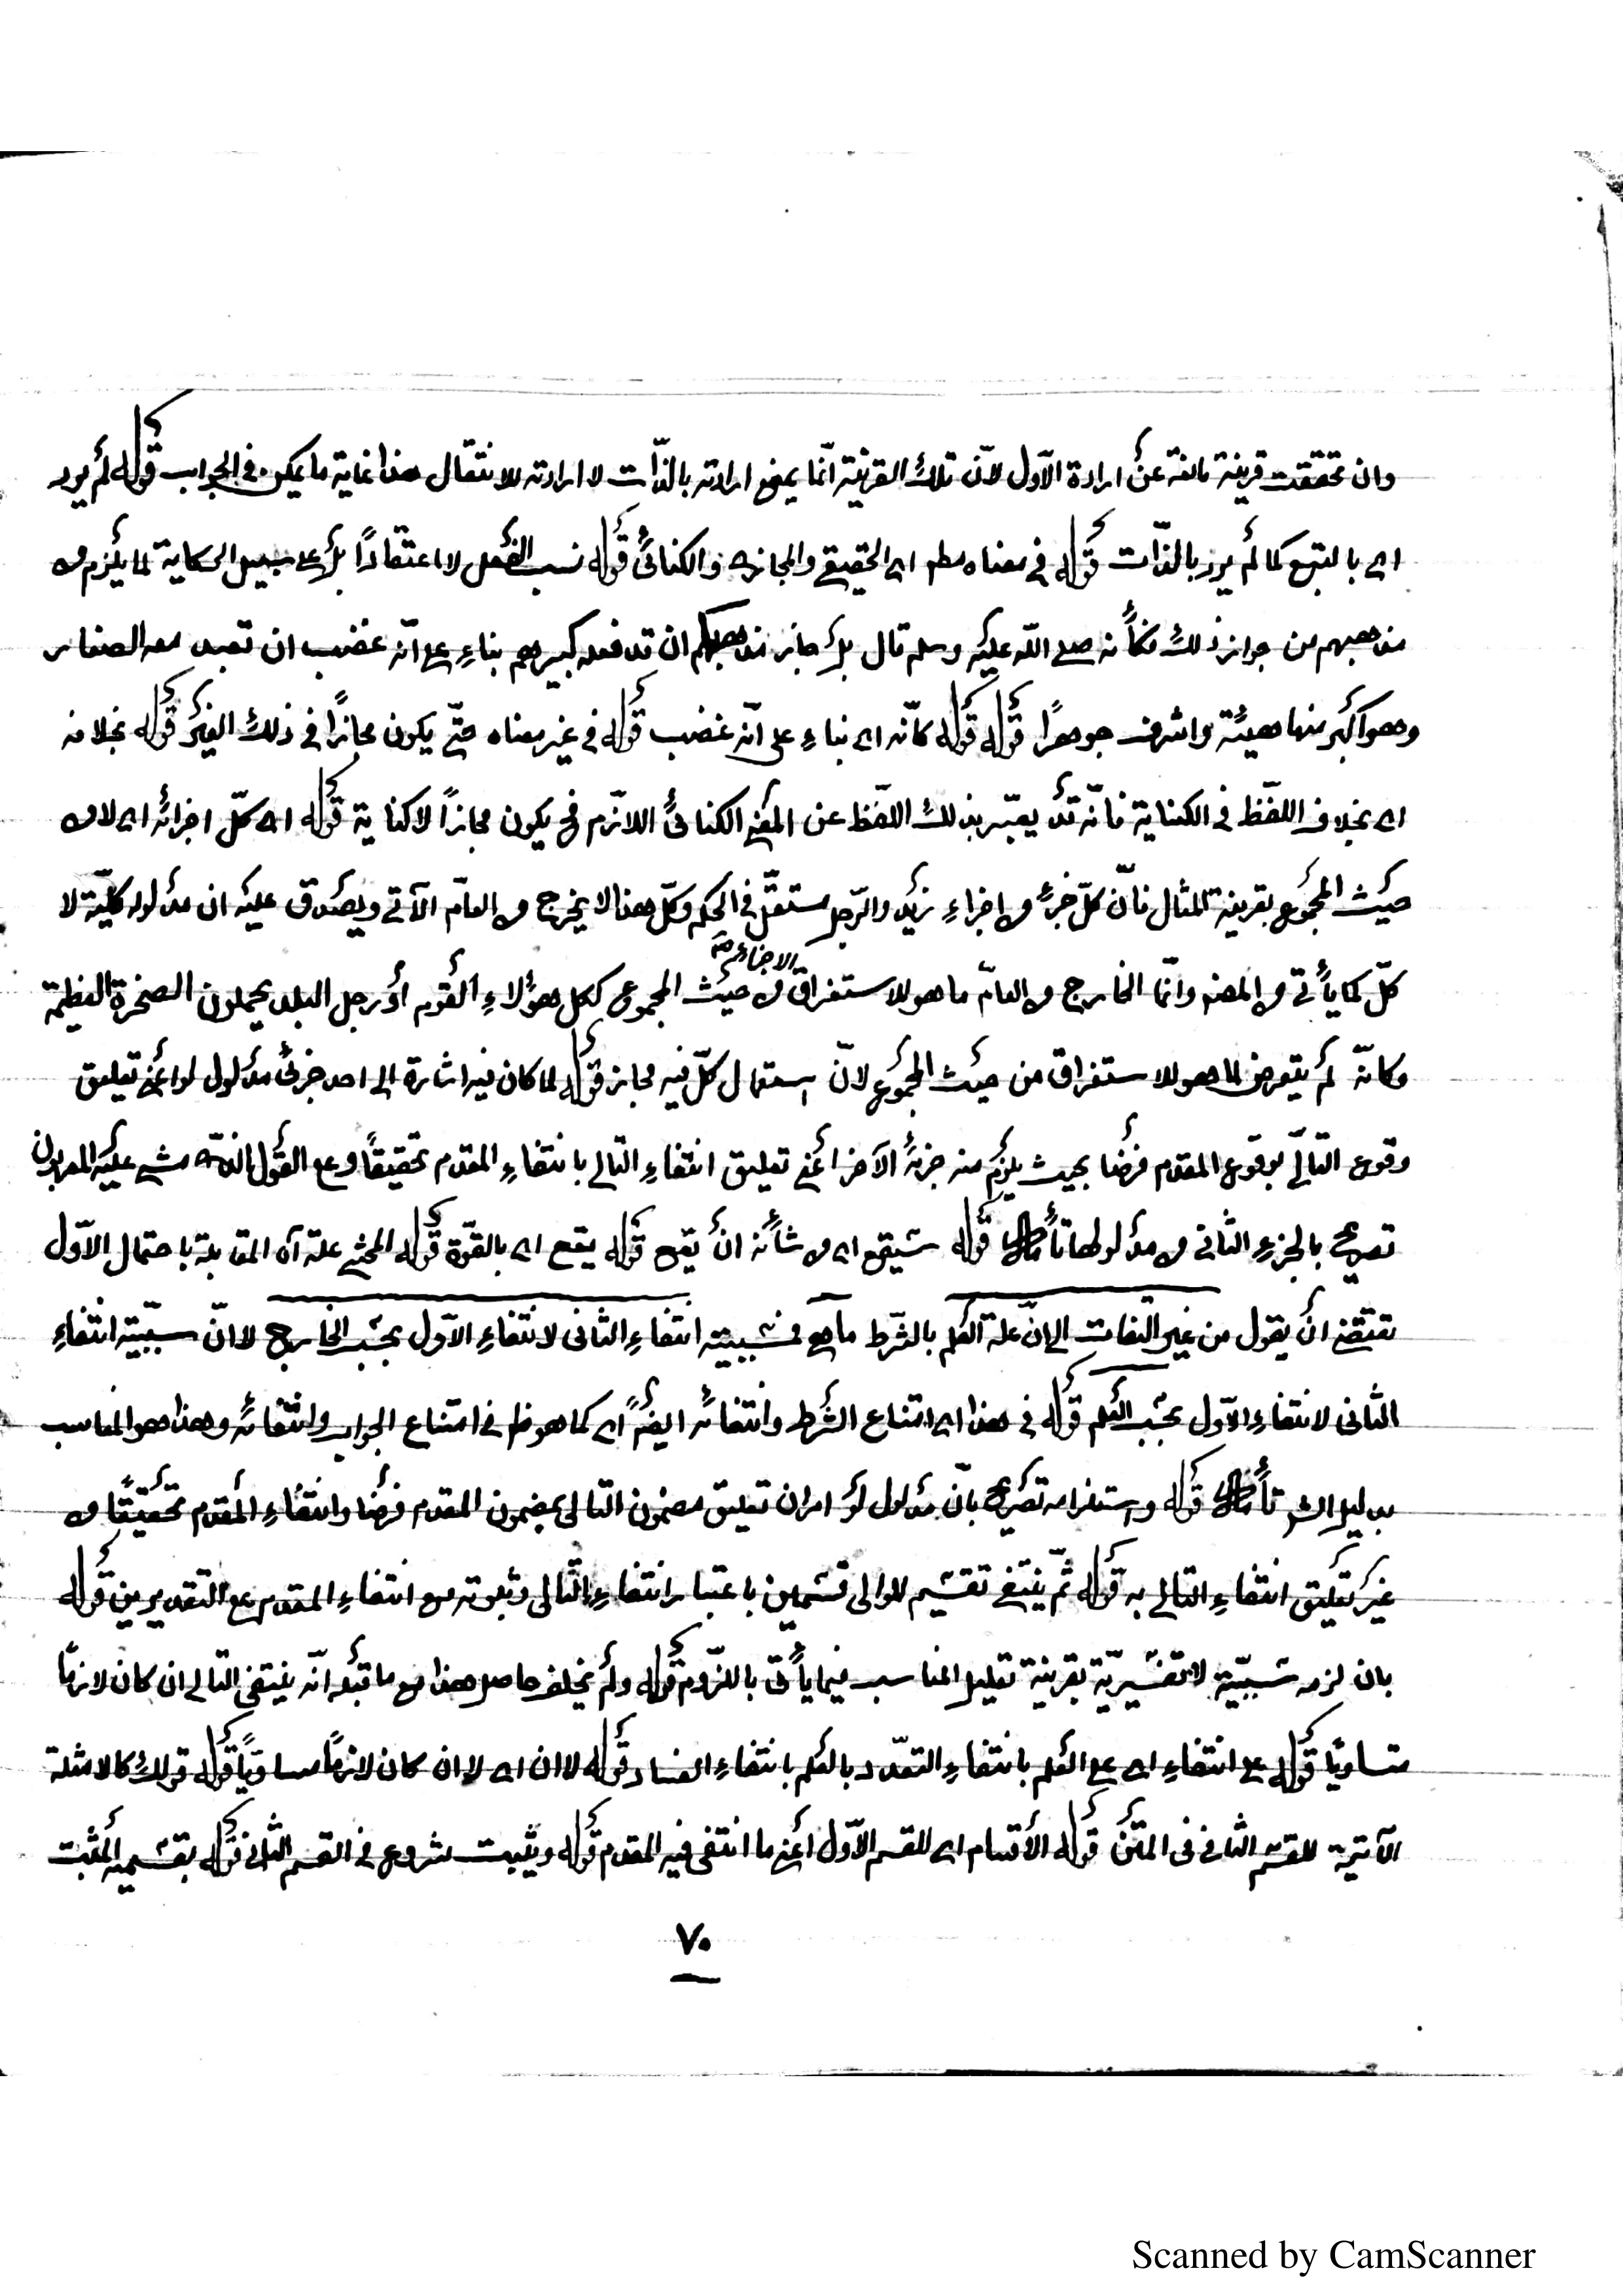 وان تحققت قرينة مانعة عن ارادة الأول لأنّ تلك القرينة انّما يمنع ارادته بالذّات لا ارادته للانتقال هذا غاية ما يمكن في الجواب قوله لم يرد
اى بالتبع كما لم يرد بالذّات قوله في معناه مط اى الحقيقى والمجازى والكنائى قوله نسب الفعل لا اعتقادًا بل على سبيل الحكاية لما يلزم من
مذهبهم من جواز ذلك فكأنه صلى الله عليه وسلم قال بل جاز مذهبكم ان قد فعله كبيرهم بناءِ على انّه غضب ان تعبد معه الصغار
وهو اكبر منها هيئة واشرف جوهرًا قوله قوله كانّه اى بناءِ على انّه غضب قوله في غير معناه حتّى يكون مجازًا في ذلك الغير قوله بخلافه
اى بخلاف اللفظ في الكناية فانّه قد يعبّر بذلك اللّفظ عن المعنى الكنائىّ اللازم فح يكون مجازًا لا كناية قوله اى كلّ اجزائه اى لا من
حيث المجموع بقرينة المثال فانّ كلّ جزء من اجزاءِ زيد والرّجل مستقلّ في الحكم وكلّ هذا لا يخرج من العامّ الآتى ويصدق عليه ان مدلوله كليّة لا
كلّ كما يأتى من المصنف وانّما الخارج من العامّ ما هو للاستغراق الاجزائى من حيث المجموع ككل هؤلاءِ القوم او رجل البلد يحملون الصخرة العظيمة
وكانّه لم يتعرض لما هو للاستغراق من حيث المجموع لانّ استعمال كلّ فيه مجاز قوله لما كان فيه اشارة الى احد جزئى مدلول لو اعنى تعليق
وقوع التالى بوقوع المقدم فرضا بحيث يلزم منه جزئه الآخر اعنى تعليق انتفاءِ التالى بانتفاءِ المقدم تحقيقًا وعلى القول الذى مشى عليه المعربون
تصريح بالجزءِ الثانى من مدلولها تأمل قوله سيقع اى من شأنه ان يقع قوله يقع اى بالقوّة قوله المحشى علة آه المقابلة باحتمال الاوّل
تقتضى ان يقول من غير التفات الى انّ علة العلم بالشرط ما هى فسببية انتفاءِ الثانى لانتفاءِ الاوّل بحسب الخارج لا انّ سببيّة انتفاءِ
الثانى لانتفاءِ الاوّل بحسب العلم قوله في هذا اى امتناع الشرط وانتفائه ايضًا اى كما هو ظ في امتناع الجواب وانتفائه وهذا هو المناسب
بدليل الش تأمل قوله واستلزامه تصريح بانّ مدلول لو امران تعليق مضمون التالى بمضمون المقدم فرضا وانتفاءِ المقدم تحقيقًا من
غير تعليق انتفاءِ التالى به قوله ثمّ ينتفى تقسيم للو الى قسمين باعتبار انتفاءِ التالى وثبوته مع انتفاءِ المقدم على التقديرين قوله
بان لزمه سببيّة لا تفسيريّة بقرينة تعليل المناسب فيما يأتى باللزوم قوله ولم يخلف حاصل هذا مع ما قبله انّه ينتفى التالى ان كان لازمًا
متساويًا قوله على انتفاءِ اى على العلم بانتفاءِ التعدّد بالعلم بانتفاءِ الفساد قوله لا ان اى لا ان كان لازمًا مساويًا قوله قولك كالامثلة
الآتية للقسم الثانى في المتن قوله الأقسام اى للقسم الاوّل اعنى ما انتفى فيه المقدم قوله ويثبت شروع في القسم الثانى قوله بقسميه المثبت
٧٠
Scanned by CamScanner